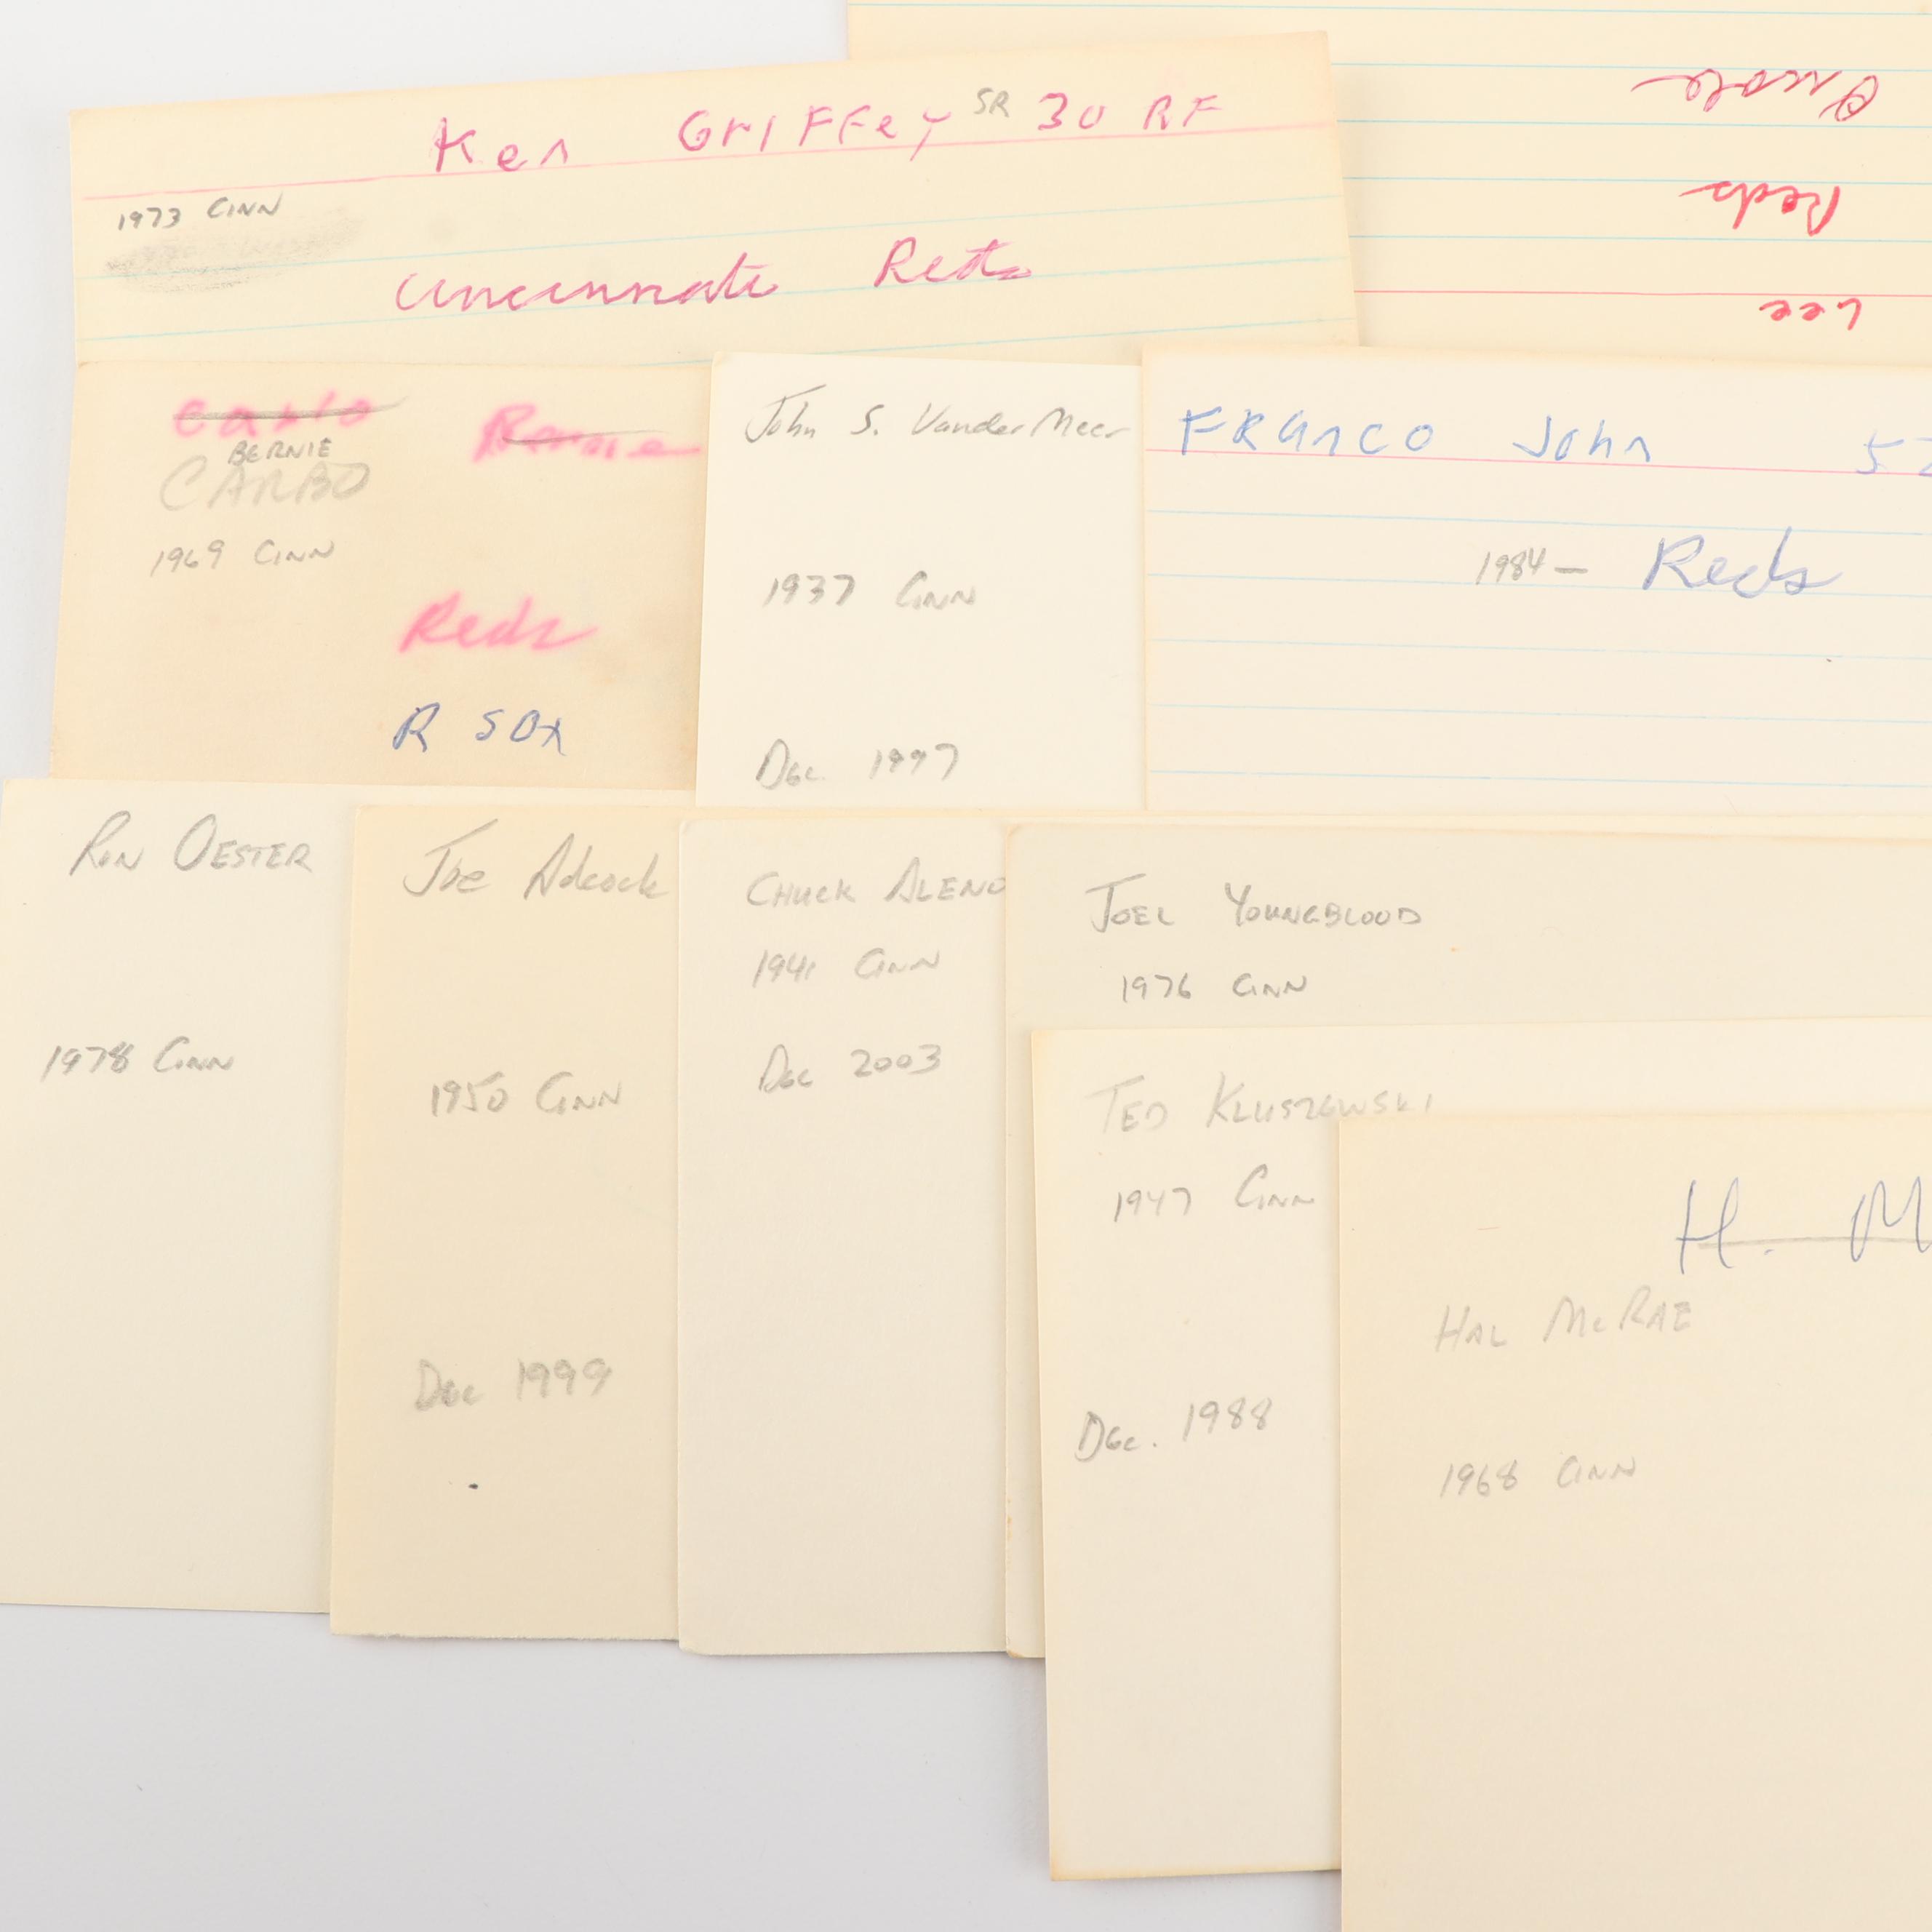 Ken GrIFFey SR 30 RF
1973 CINN
Cincinnati Reds
Reds
Lee
Carbo
BERNIE
CARBO
1969 CINN
Reds
R SOX
John S. VanderMeer
1937 CINN
DEC 1997
FRANCO John
1984 — Reds
RON OESTER
1978 CINN
Joe Adcock
1950 CINN
DEC 1999
CHUCK ALENO
1941 CINN
DEC 2003
JOEL YOUNGBLOOD
1976 CINN
TED KLUSZEWSKI
1947 CINN
DEC. 1988
H. M
HAL McRAE
1968 CINN